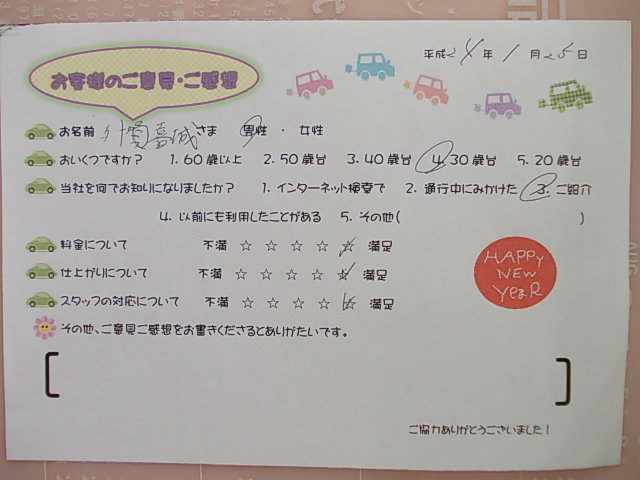 平成24年1月25日
お客様のご意見・ご感想
お名前 さま 男性 ・ 女性
おいくつですか? 1. 60歳以上 2. 50歳台 3. 40歳台 4. 30歳台 5. 20歳台
当社を何でお知りになりましたか? 1. インターネット検索で 2. 通行中にみかけた 3. ご紹介
4. 以前にも利用したことがある 5. その他( )
料金について 不満 ☆ ☆ ☆ ☆ ☆ 満足
仕上がりについて 不満 ☆ ☆ ☆ ☆ ☆ 満足
スタッフの対応について 不満 ☆ ☆ ☆ ☆ ☆ 満足
HAPPY
NEW
YEAR
その他、ご意見ご感想をお書きくださるとありがたいです。
ご協力ありがとうございました!